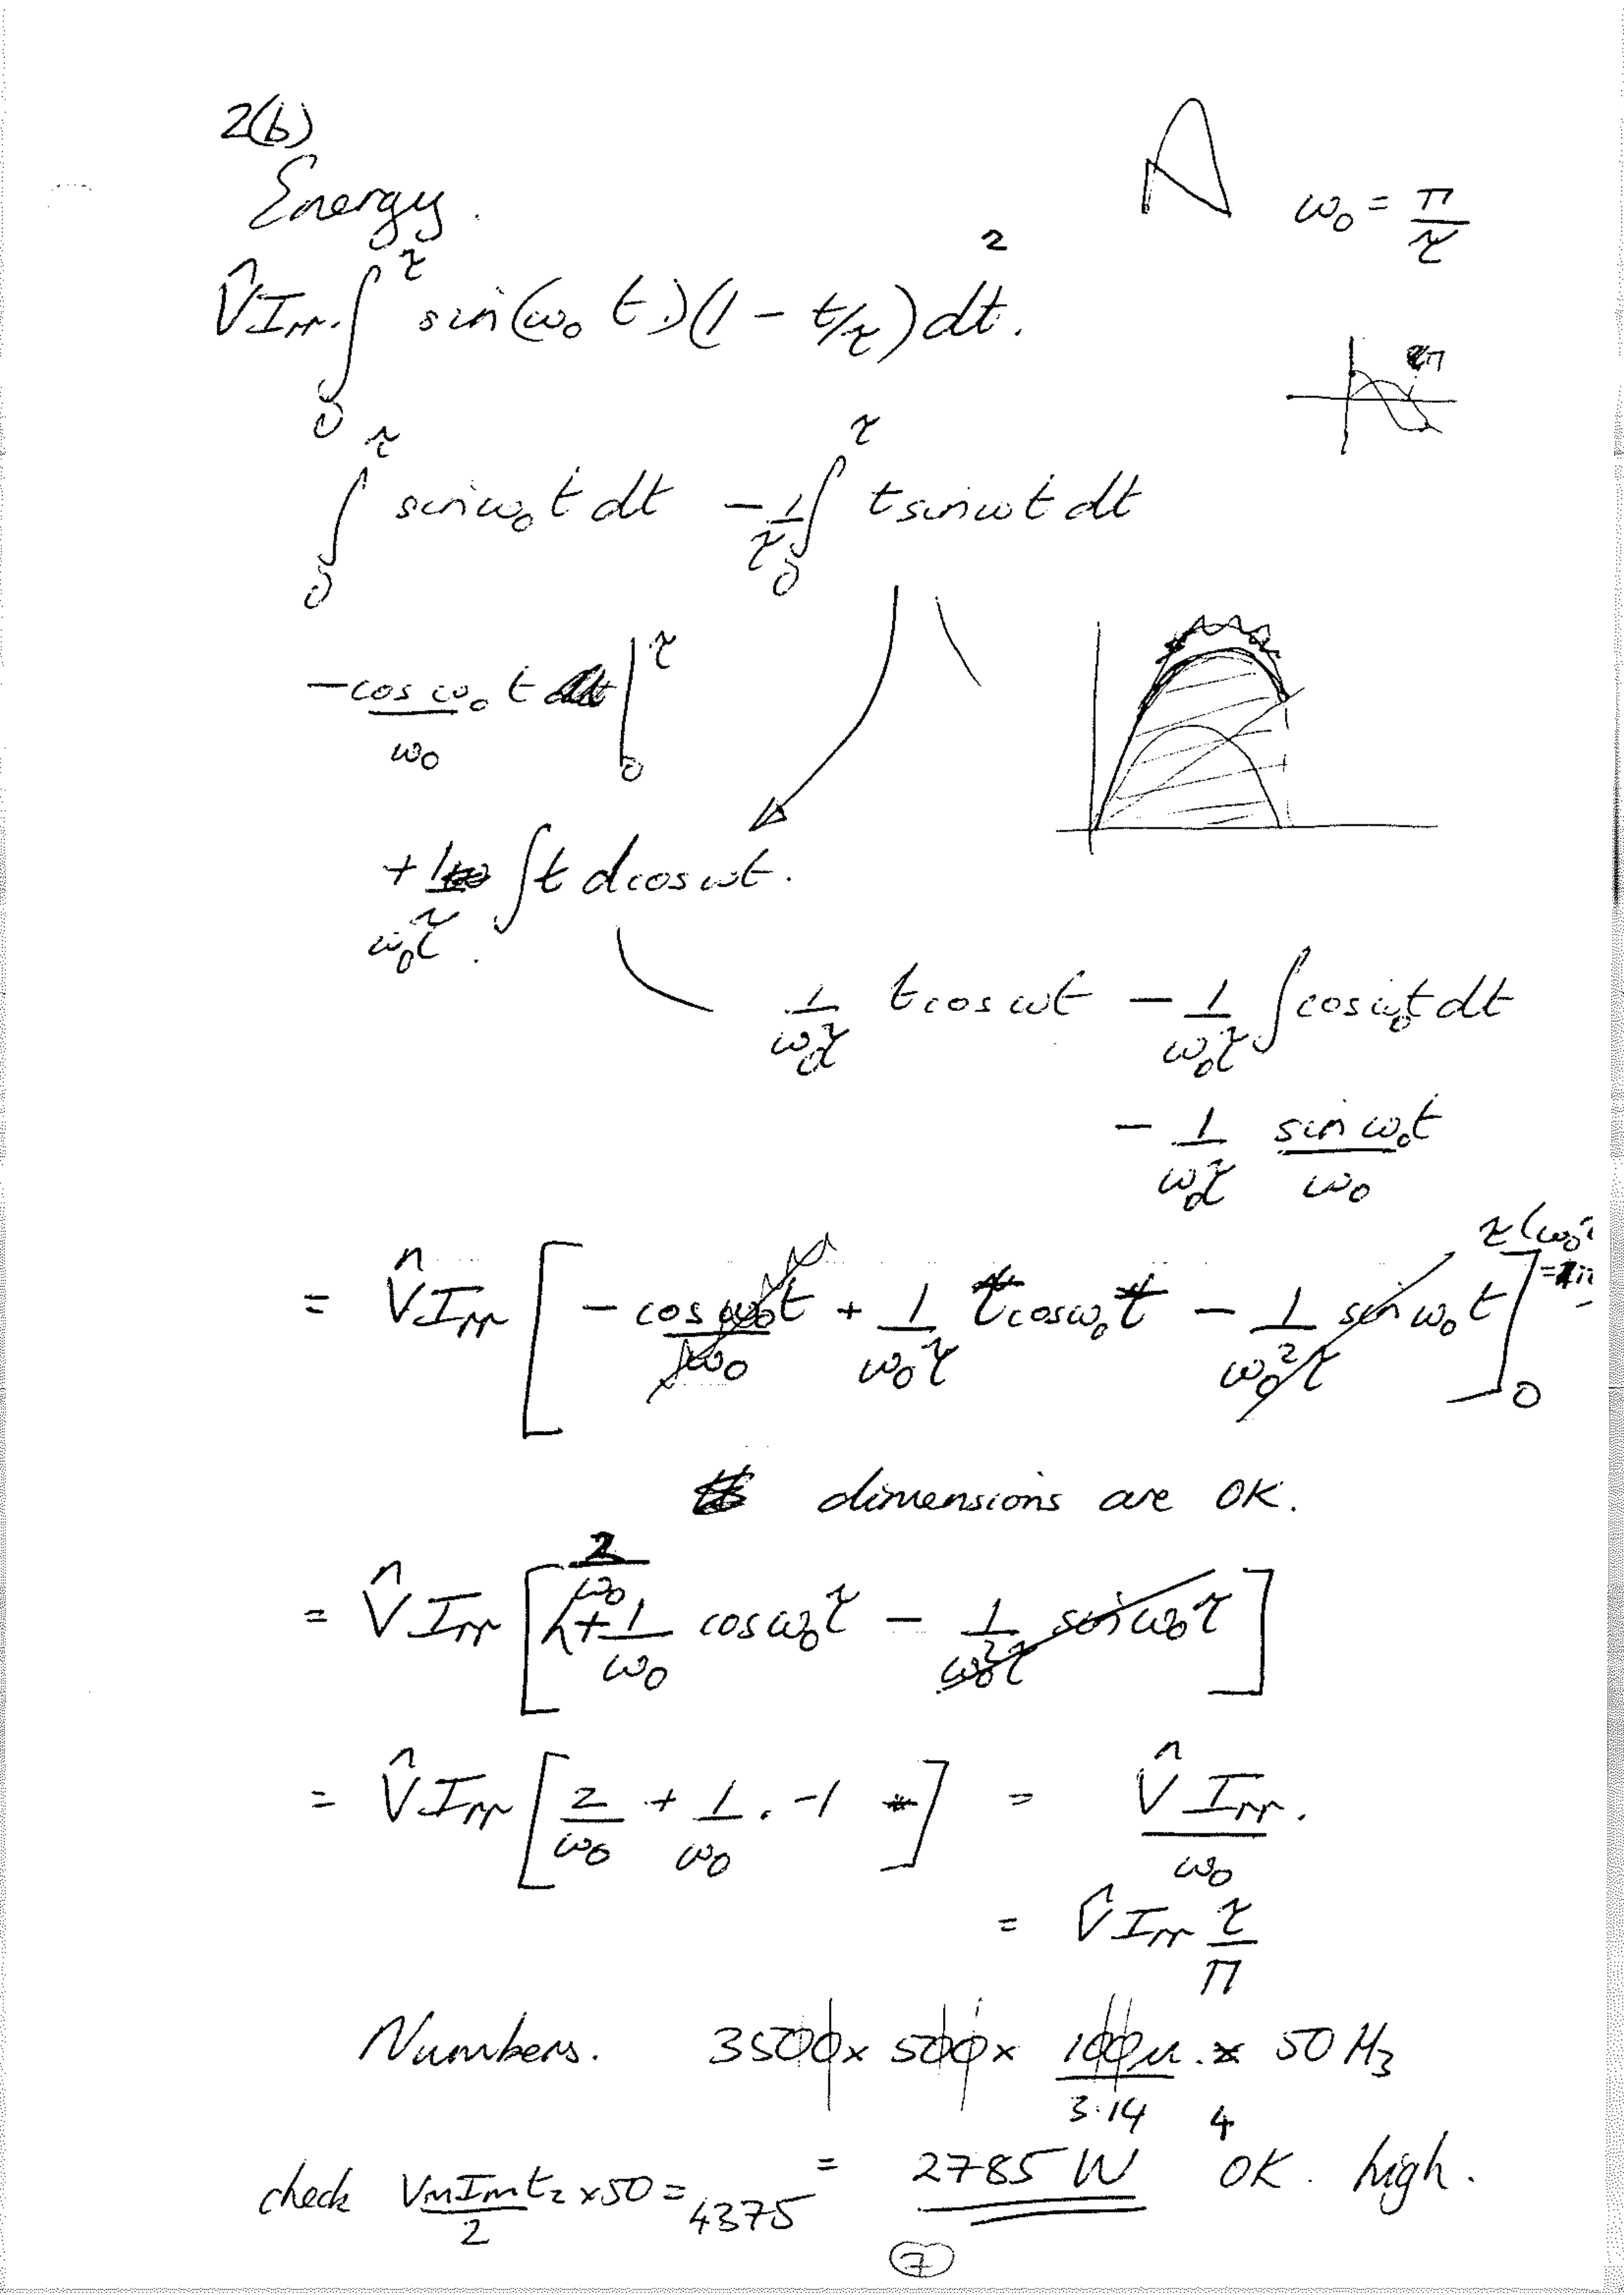 2(b)
Energy.
ω₀ = π/τ
2
V̂ Irr. ∫₀^τ sin(ω₀ t.)(1 − t/τ) dt.
π
∫₀^τ sin ω₀ t dt − 1/τ ∫₀^τ t sin ωt dt
−cos ω₀ t / ω₀ |₀^τ
+ 1/(ω₀τ) ∫ t d cos ωt.
1/(ω₀τ) t cos ωt − 1/(ω₀τ) ∫ cos ω₀t dt
− 1/(ω₀τ) sin ω₀t / ω₀
= V̂ Irr [ − cos ω₀t / ω₀ + 1/(ω₀τ) t cos ω₀ t − 1/(ω₀²τ) sin ω₀ t ]₀^τ
dimensions are OK.
= V̂ Irr [ 2/ω₀ + 1/ω₀ cos ω₀τ − 1/(ω₀²τ) sin ω₀τ ]
= V̂ Irr [ 2/ω₀ + 1/ω₀ . −1 ] = V̂ Irr. / ω₀
= V̂ Irr τ/π
Numbers. 3500 × 500 × 100μ/3.14 . × 50 Hz
4
= 2785 W OK. high.
check VmIm/2 t₂ × 50 = 4375
7